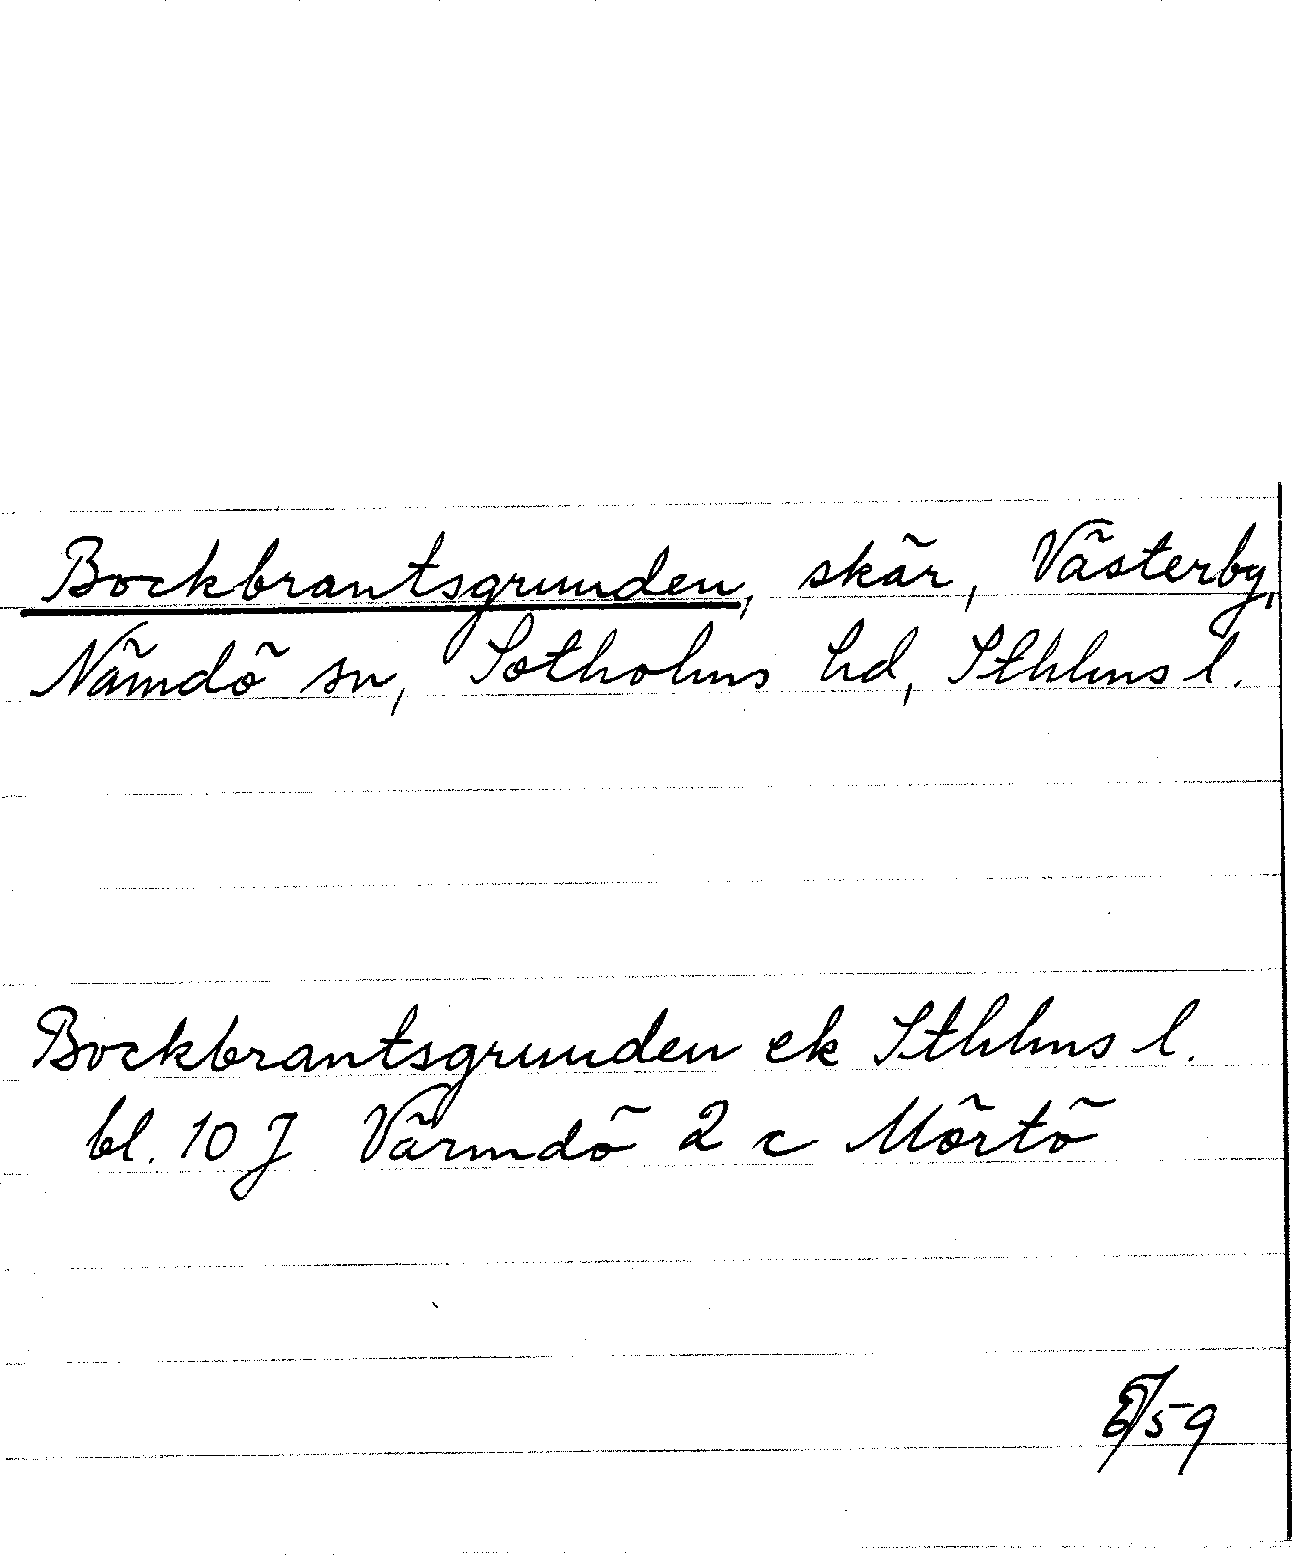 Bockbrantsgrunden, skär, Västerby,
Nämdö sn, Sotholms hd, Sthlms l.
Bockbrantsgrunden ek Sthlms l.
bl. 10 J Värmdö 2 c Mörtö
/59